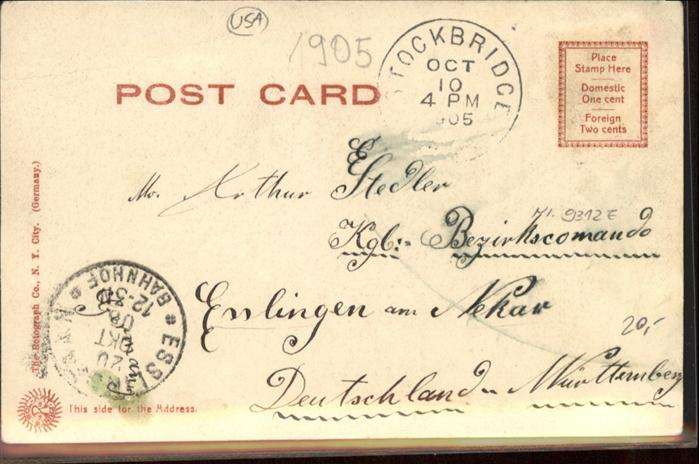 USA
1905
STOCKBRIDGE
OCT
10
4 PM
905
POST CARD
Place
Stamp Here
Domestic
One cent
Foreign
Two cents
Mr. Arthur Stedler
H. 9312 E
Kgl:- Bezirkscomando
Esslingen am Nekar
20,-
Deutschland Württemberg
ESSL
BAHNHOF
12-3
20
OKT
The Rotograph Co., N. Y. City. (Germany.)
This side for the Address.